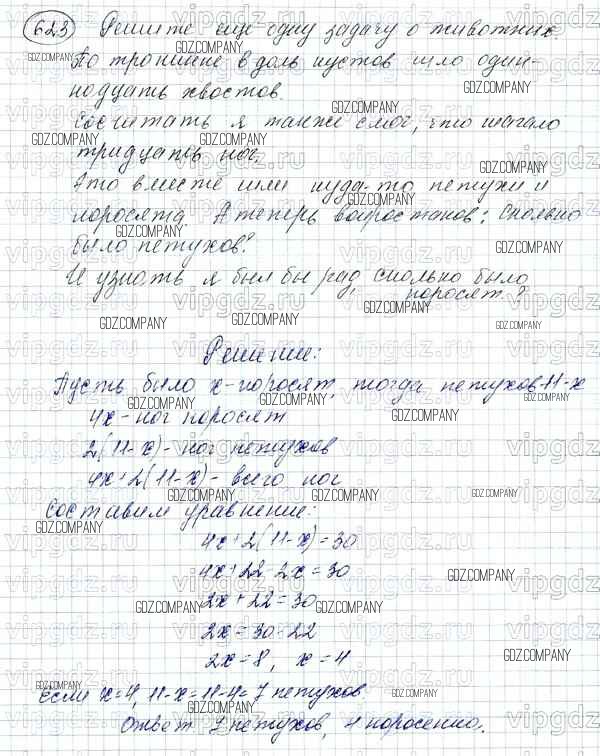 623 Решите еще одну задачу о животных.
По тропинке вдоль кустов шло один-
надцать хвостов.
Сосчитать я также смог, что шагало
тридцать ног.
Это вместе шли куда-то петухи и
поросята. А теперь вопрос таков: сколько
было петухов?
И узнать я был бы рад, сколько было
поросят?
Решение:
Пусть было x-поросят, тогда петухов-11-x
4x - ног поросят
2(11-x) - ног петухов
4x+2(11-x) - всего ног
Составим уравнение:
4x+2(11-x)=30
4x+22-2x=30
2x+22=30
2x=30-22
2x=8, x=4
Если x=4, 11-x=11-4=7 петухов
Ответ 7 петухов, 4 поросенка.
GDZ.COMPANY
vipgdz.ru